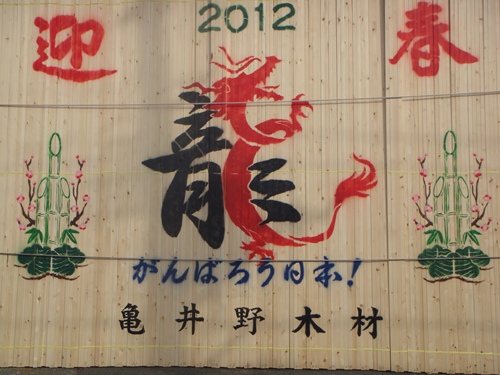 2012
迎春
龍
がんばろう日本!
亀井野木材